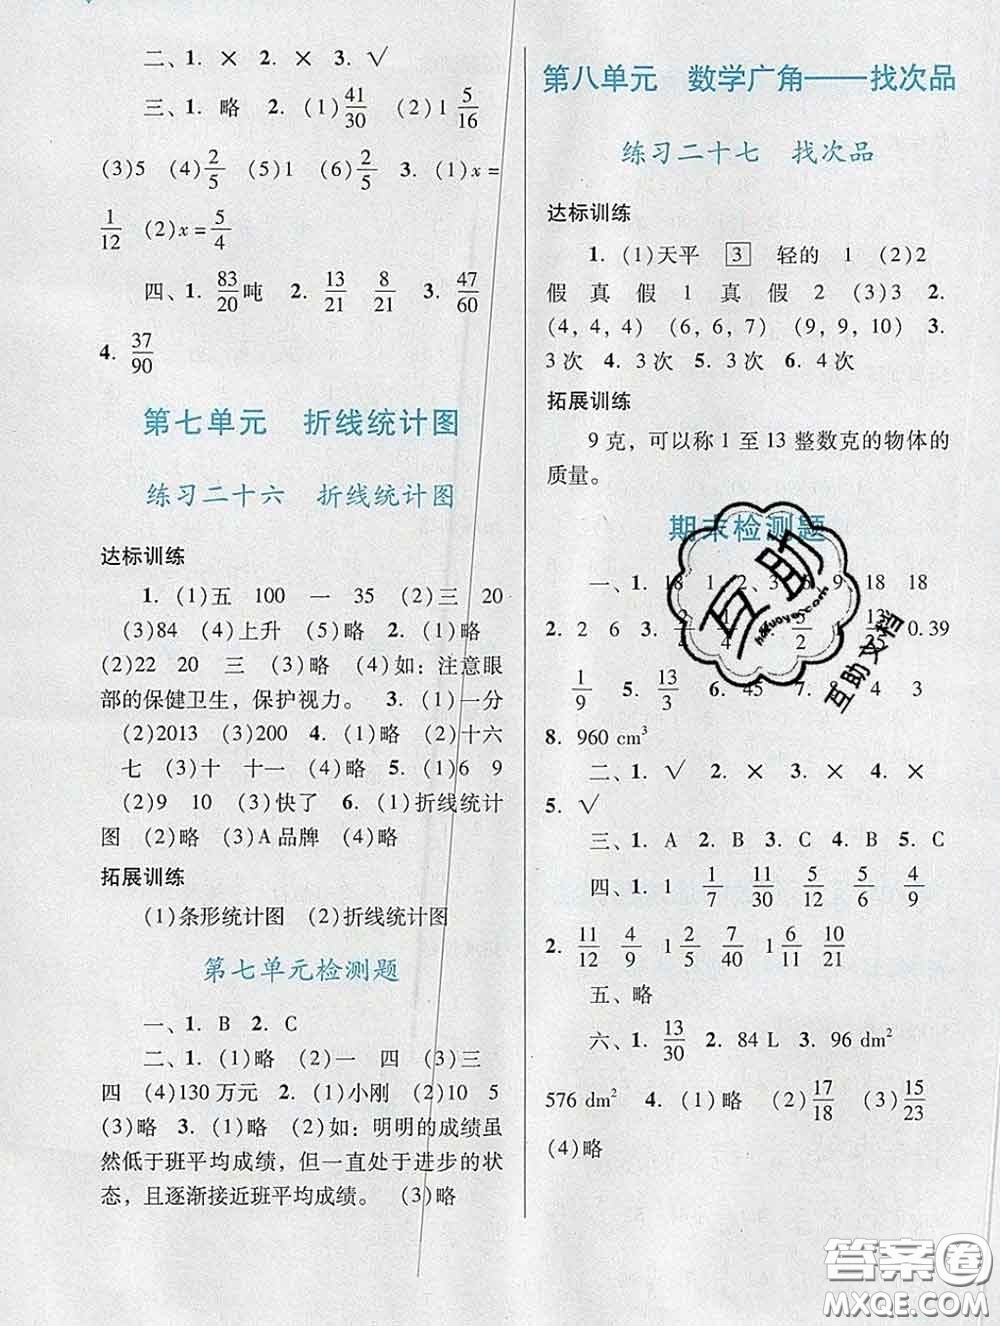 二、1. ×　2. ×　3. √
三、1. 略　2. (1)41/30　(2)1 5/16
(3)5　(4)2/5　(5)1　(6)2/5　3. (1)x=
1/12　(2)x=5/4
四、1. 83/20吨　2. 13/21　8/21　3. 47/60
4. 37/90
第七单元　折线统计图
练习二十六　折线统计图
达标训练
1. (1)五　100　一　35　(2)三　20
(3)84　(4)上升　(5)略　2. (1)略
(2)22　20　三　(3)略　(4)如：注意眼
部的保健卫生，保护视力。　3. (1)一分
(2)2013　(3)200　4. (1)略　(2)十六
七　(3)十　十一　(4)略　5. (1)6　9
(2)9　10　(3)快了　6. (1)折线统计
图　(2)略　(3)A 品牌　(4)略
拓展训练
(1)条形统计图　(2)折线统计图
第七单元检测题
一、1. B　2. C
二、1. (1)略　(2)一　四　(3)三
四　(4)130 万元　2. (1)小刚　(2)10　5
(3)略　3. (1)略　(2)如：明明的成绩虽
然低于班平均成绩，但一直处于进步的状
态，且逐渐接近班平均成绩。　(3)略
第八单元　数学广角——找次品
练习二十七　找次品
达标训练
1. (1)天平　3　轻的　1　(2)2
假　真　假　1　真　假　2　(3)3　2.
(4, 4, 4)　(6, 6, 7)　(9, 9, 10)　3.
3 次　4. 3 次　5. 3 次　6. 4 次
拓展训练
9 克，可以称 1 至 13 整数克的物体的
质量。
期末检测题
一、1. 18　1　2　3　9　18　18
2. 2　6　3.　0.39
1/9　5. 13/3　6. 45　7.　4　3
8. 960 cm³
二、1. √　2. ×　3. ×　4. ×
5. √
三、1. A　2. B　3. C　4. B　5. C
四、1. 1　1/7　11/30　5/12　5/6　4/9
2. 11/12　4/9　1 2/5　7/40　1 6/11　10/21
五、略
六、1. 13/30　2. 84 L　3. 96 dm²
576 dm²　4. (1)略　(2)17/18　(3)15/23
(4)略
互助
互助文档
答案圈
MXQE.COM